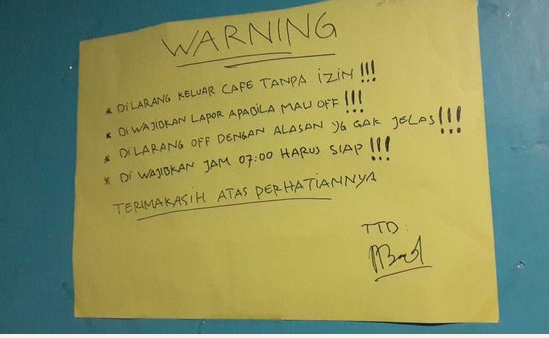 WARNING
* DILARANG KELUAR CAFE TANPA IZIN !!!
* DI WAJIBKAN LAPOR APABILA MAU OFF !!!
* DILARANG OFF DENGAN ALASAN YG GAK JELAS !!!
* DI WAJIBKAN JAM 07:00 HARUS SIAP !!!
TERIMAKASIH ATAS PERHATIANNYA
TTD